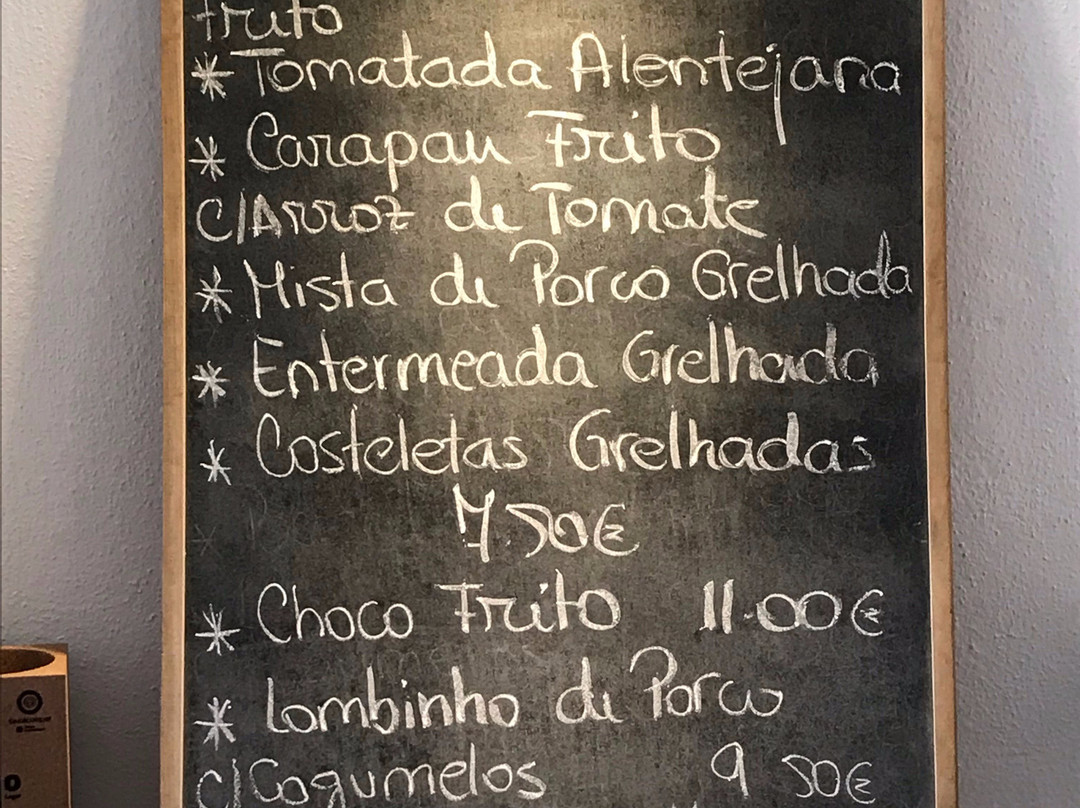 frito
* Tomatada Alentejana
* Carapau Frito
C/Arroz de Tomate
* Mista de Porco Grelhada
* Entermeada Grelhada
* Costeletas Grelhadas
7.50€
* Choco Frito 11.00€
* Lombinho de Porco
c/Cogumelos 9 50€